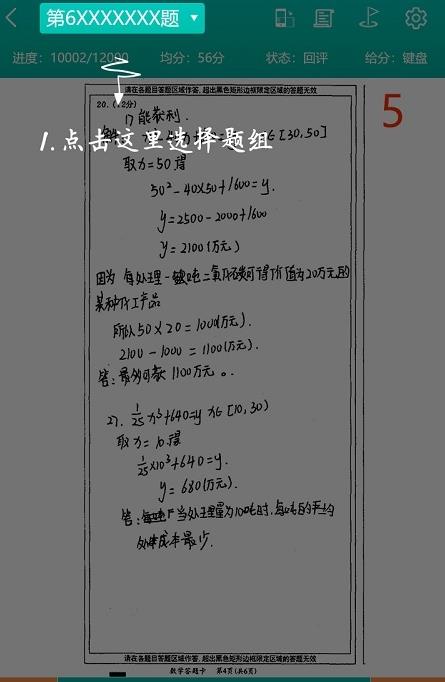 第6XXXXXXX题
进度：10002/12000 均分：56分 状态：回评 给分：键盘
请在各题目答题区域作答，超出黑色矩形边框限定区域的答题无效
20. (12分)
5
1) 能获利.
1.点击这里选择题组
[30,50]
取x=50得
50²-40×50+1600=y.
y=2500-2000+1600
y=2100(万元)
因为 每处理一吨二氧化碳可得价值为20万元的
某种化工产品
所以50×20=1000(万元).
2100-1000=1100(万元).
答:最多可获1100万元。
27. 1/25 x³+640=y x∈[10,30)
取x=10得
1/25×10³+640=y.
y=680(万元).
答:当处理量为10吨时,每吨的平均
处理成本最少.
请在各题目答题区域作答，超出黑色矩形边框限定区域的答题无效
数学答题卡 第4页(共6页)